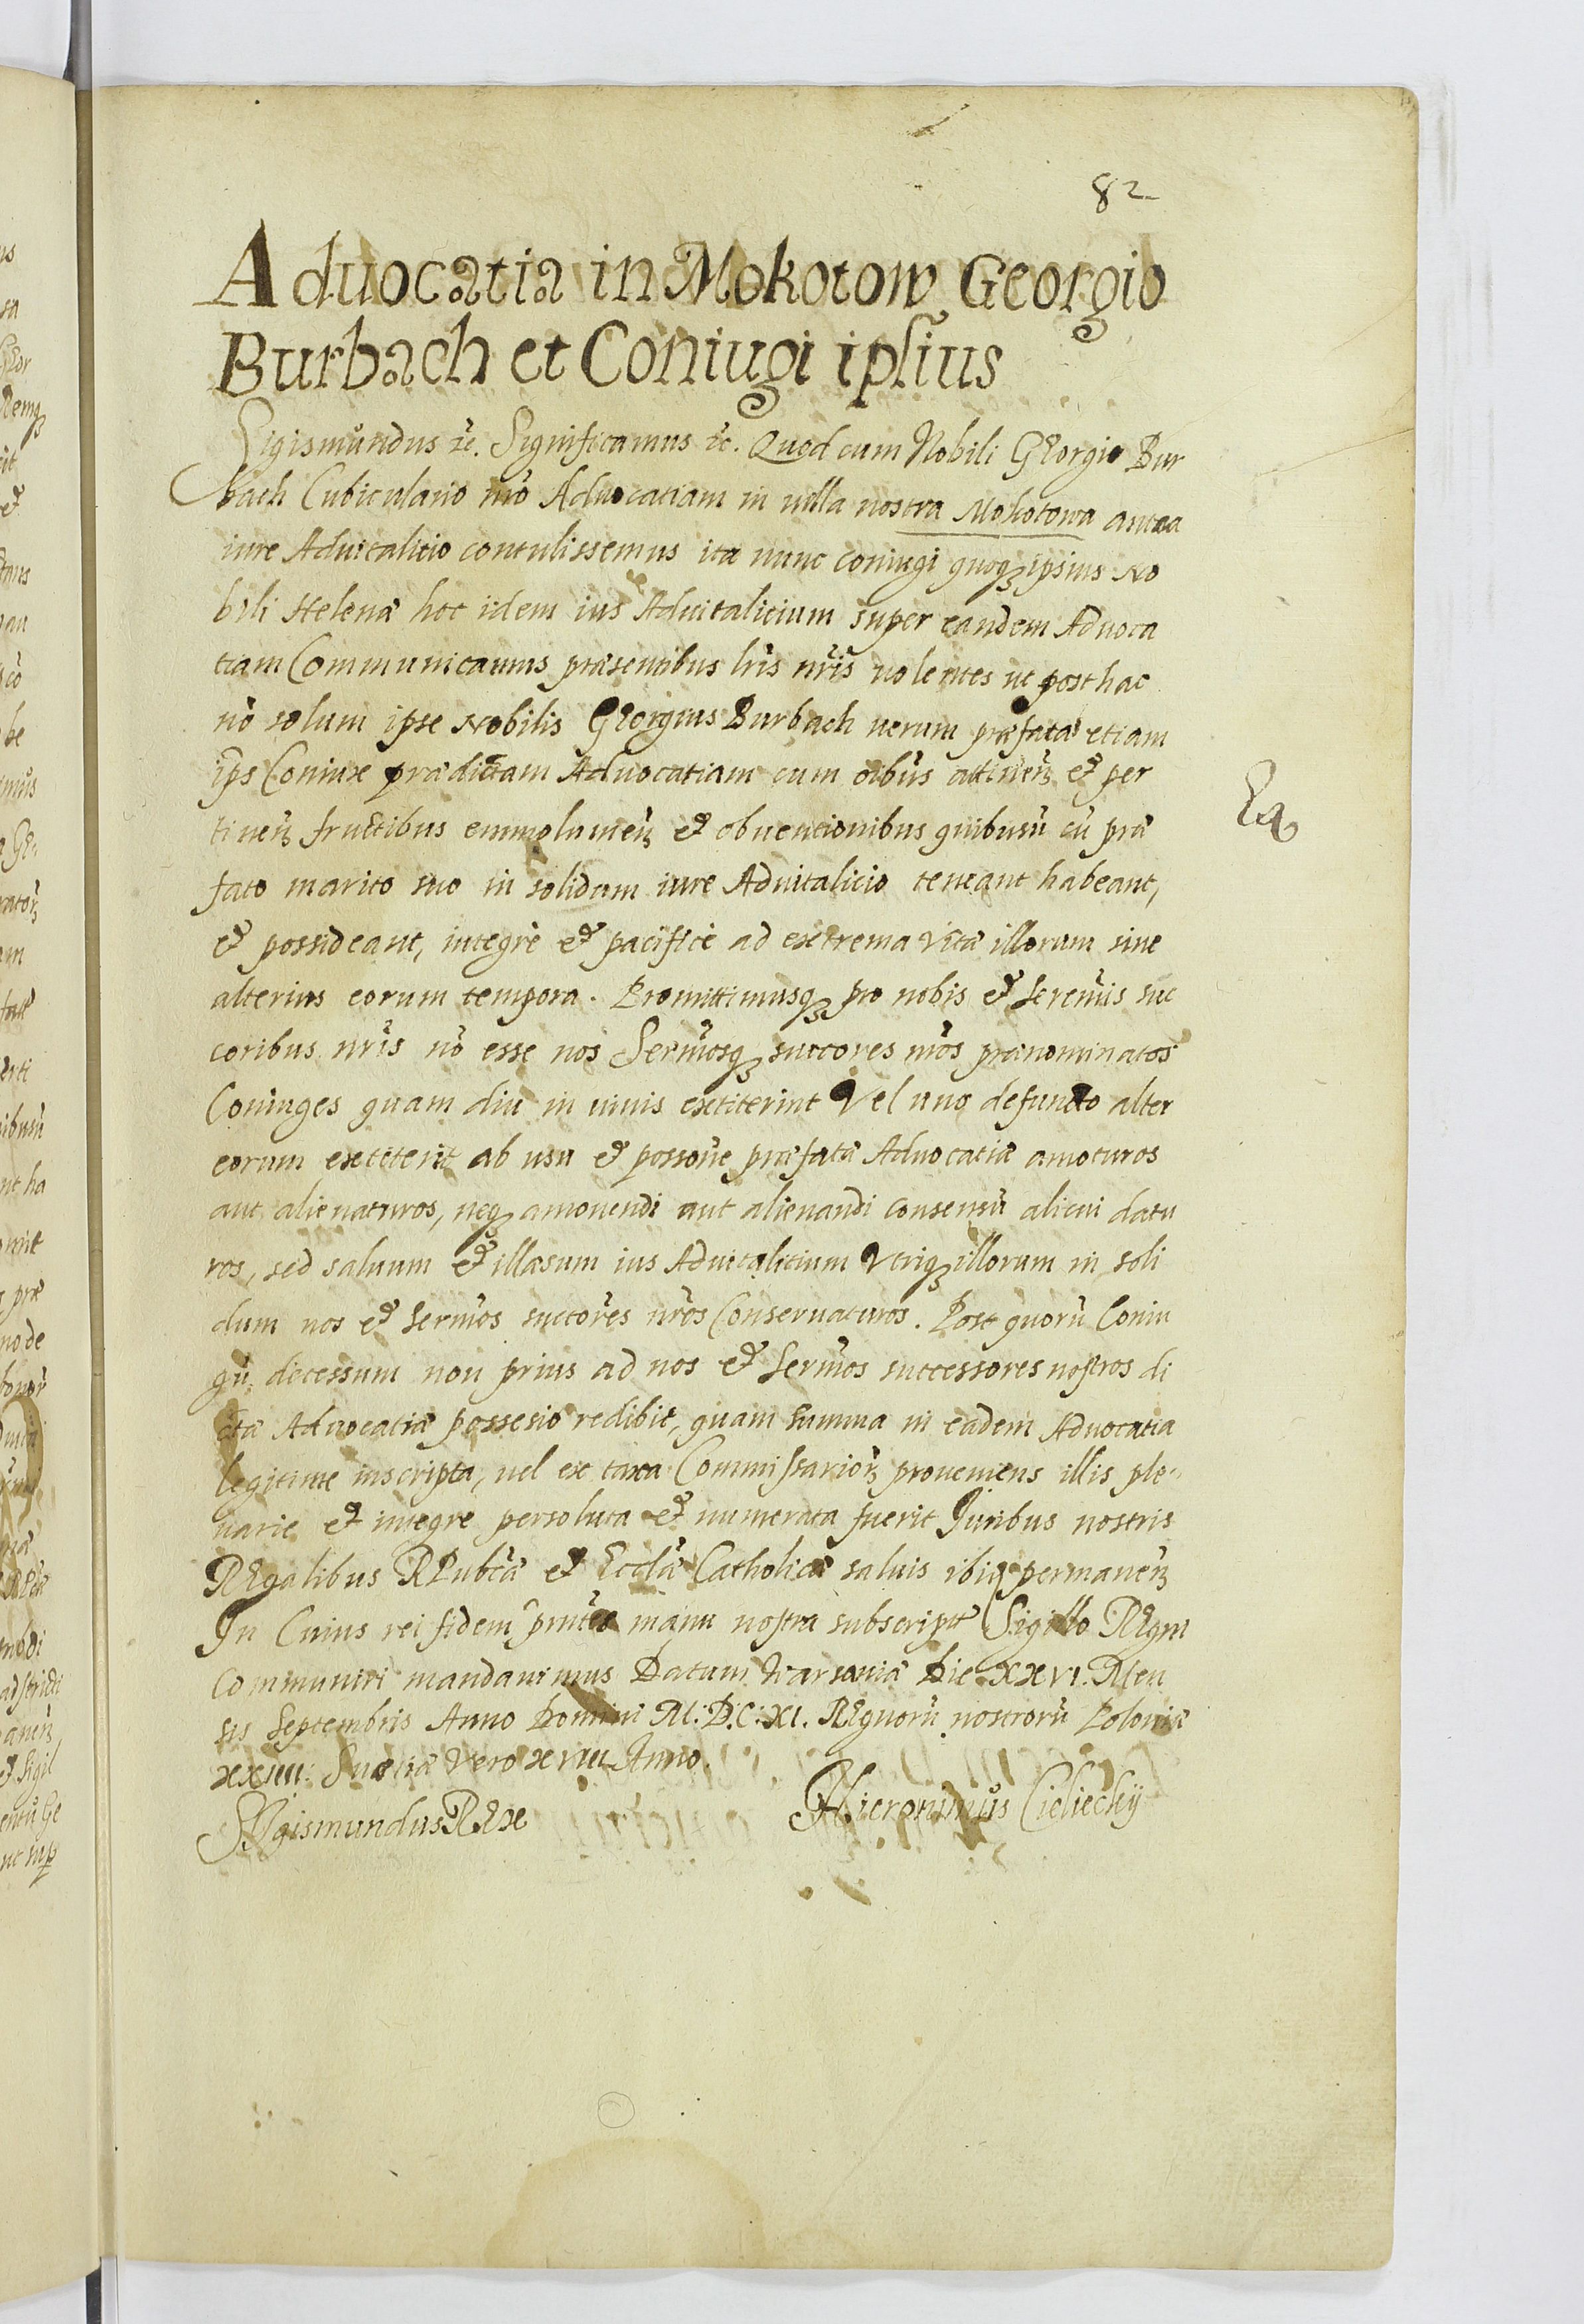 82
Aduocatia in Mokotow Georgio
Burbach et Coniugi ipsius
Sigismundus etc. Significamus etc. Quod cum Nobili GEorgio Bur
bach Cubiculario nrō Aduocatiam in villa nostra Mokotowa antea
iure Aduitalitio contulissemus ita nunc coniugi quoqꝫ ipsius No
bili Helenæ hoc idem ius Aduitalicium super eandem Aduoca
tiam Communicamus præsentibus lr̄is nr̄is uolentes ut post hac
nō solum ipse Nobilis GEorgius Burbach uerum præfata etiam
ips Coniux prædictam Aduocatiam cum oībus attineñ et per
tineñ fructibus emmolumeñ et obuentionibus quibusū cū præ
fato marito suo in solidum iure Aduitalicio teneant habeant,
et possideant, integrè et pacificè ad extrema vitæ illorum siue
alterius eorum tempora. Promittimusqꝫ pro nobis et Sereñis suc
coribus nr̄is nō esse nos Serm̄osqꝫ succores nr̄os prænominatos
Coniuges quam diu in uiuis extiterint Vel uno defuncto alter
eorum extiterit ab usu et possoñe præfatæ Aduocatiæ amoturos
aut alienaturos, neqꝫ amouendi aut alienandi consensū alicui datu
ros, sed saluum et illæsum ius Aduitalitium Vtriqꝫ illorum in soli
dum nos et Serm̄os succōres nr̄os Conseruaturos. Post quorū Coniu
gū decessum non prius ad nos et Serm̄os successores nostros di
ctæ Aduocatiæ possesio redibit, quam summa in eadem Aduocatia
legitime inscripta, uel ex taxa Commissarioꝝ proueniens illis ple-
narie et integre persoluta et numerata fuerit Juribus nostris
REgalibus RPub̄cæ et Ecclæ Catholicæ saluis ibiqꝫ permaneñ
In Cuius rei fidem prñtes manu nostra subscriptas Sigillo REgni
communiri mandauimus Datum Warsauiæ Die XXVI. Men
sis Septembris Anno Domini M:D:C:XI. REgnorū nostrorū Poloniæ
XXIIII. Sueciæ Vero XVIII Anno.
SIgismundus REx Hieronimus Cieliecky